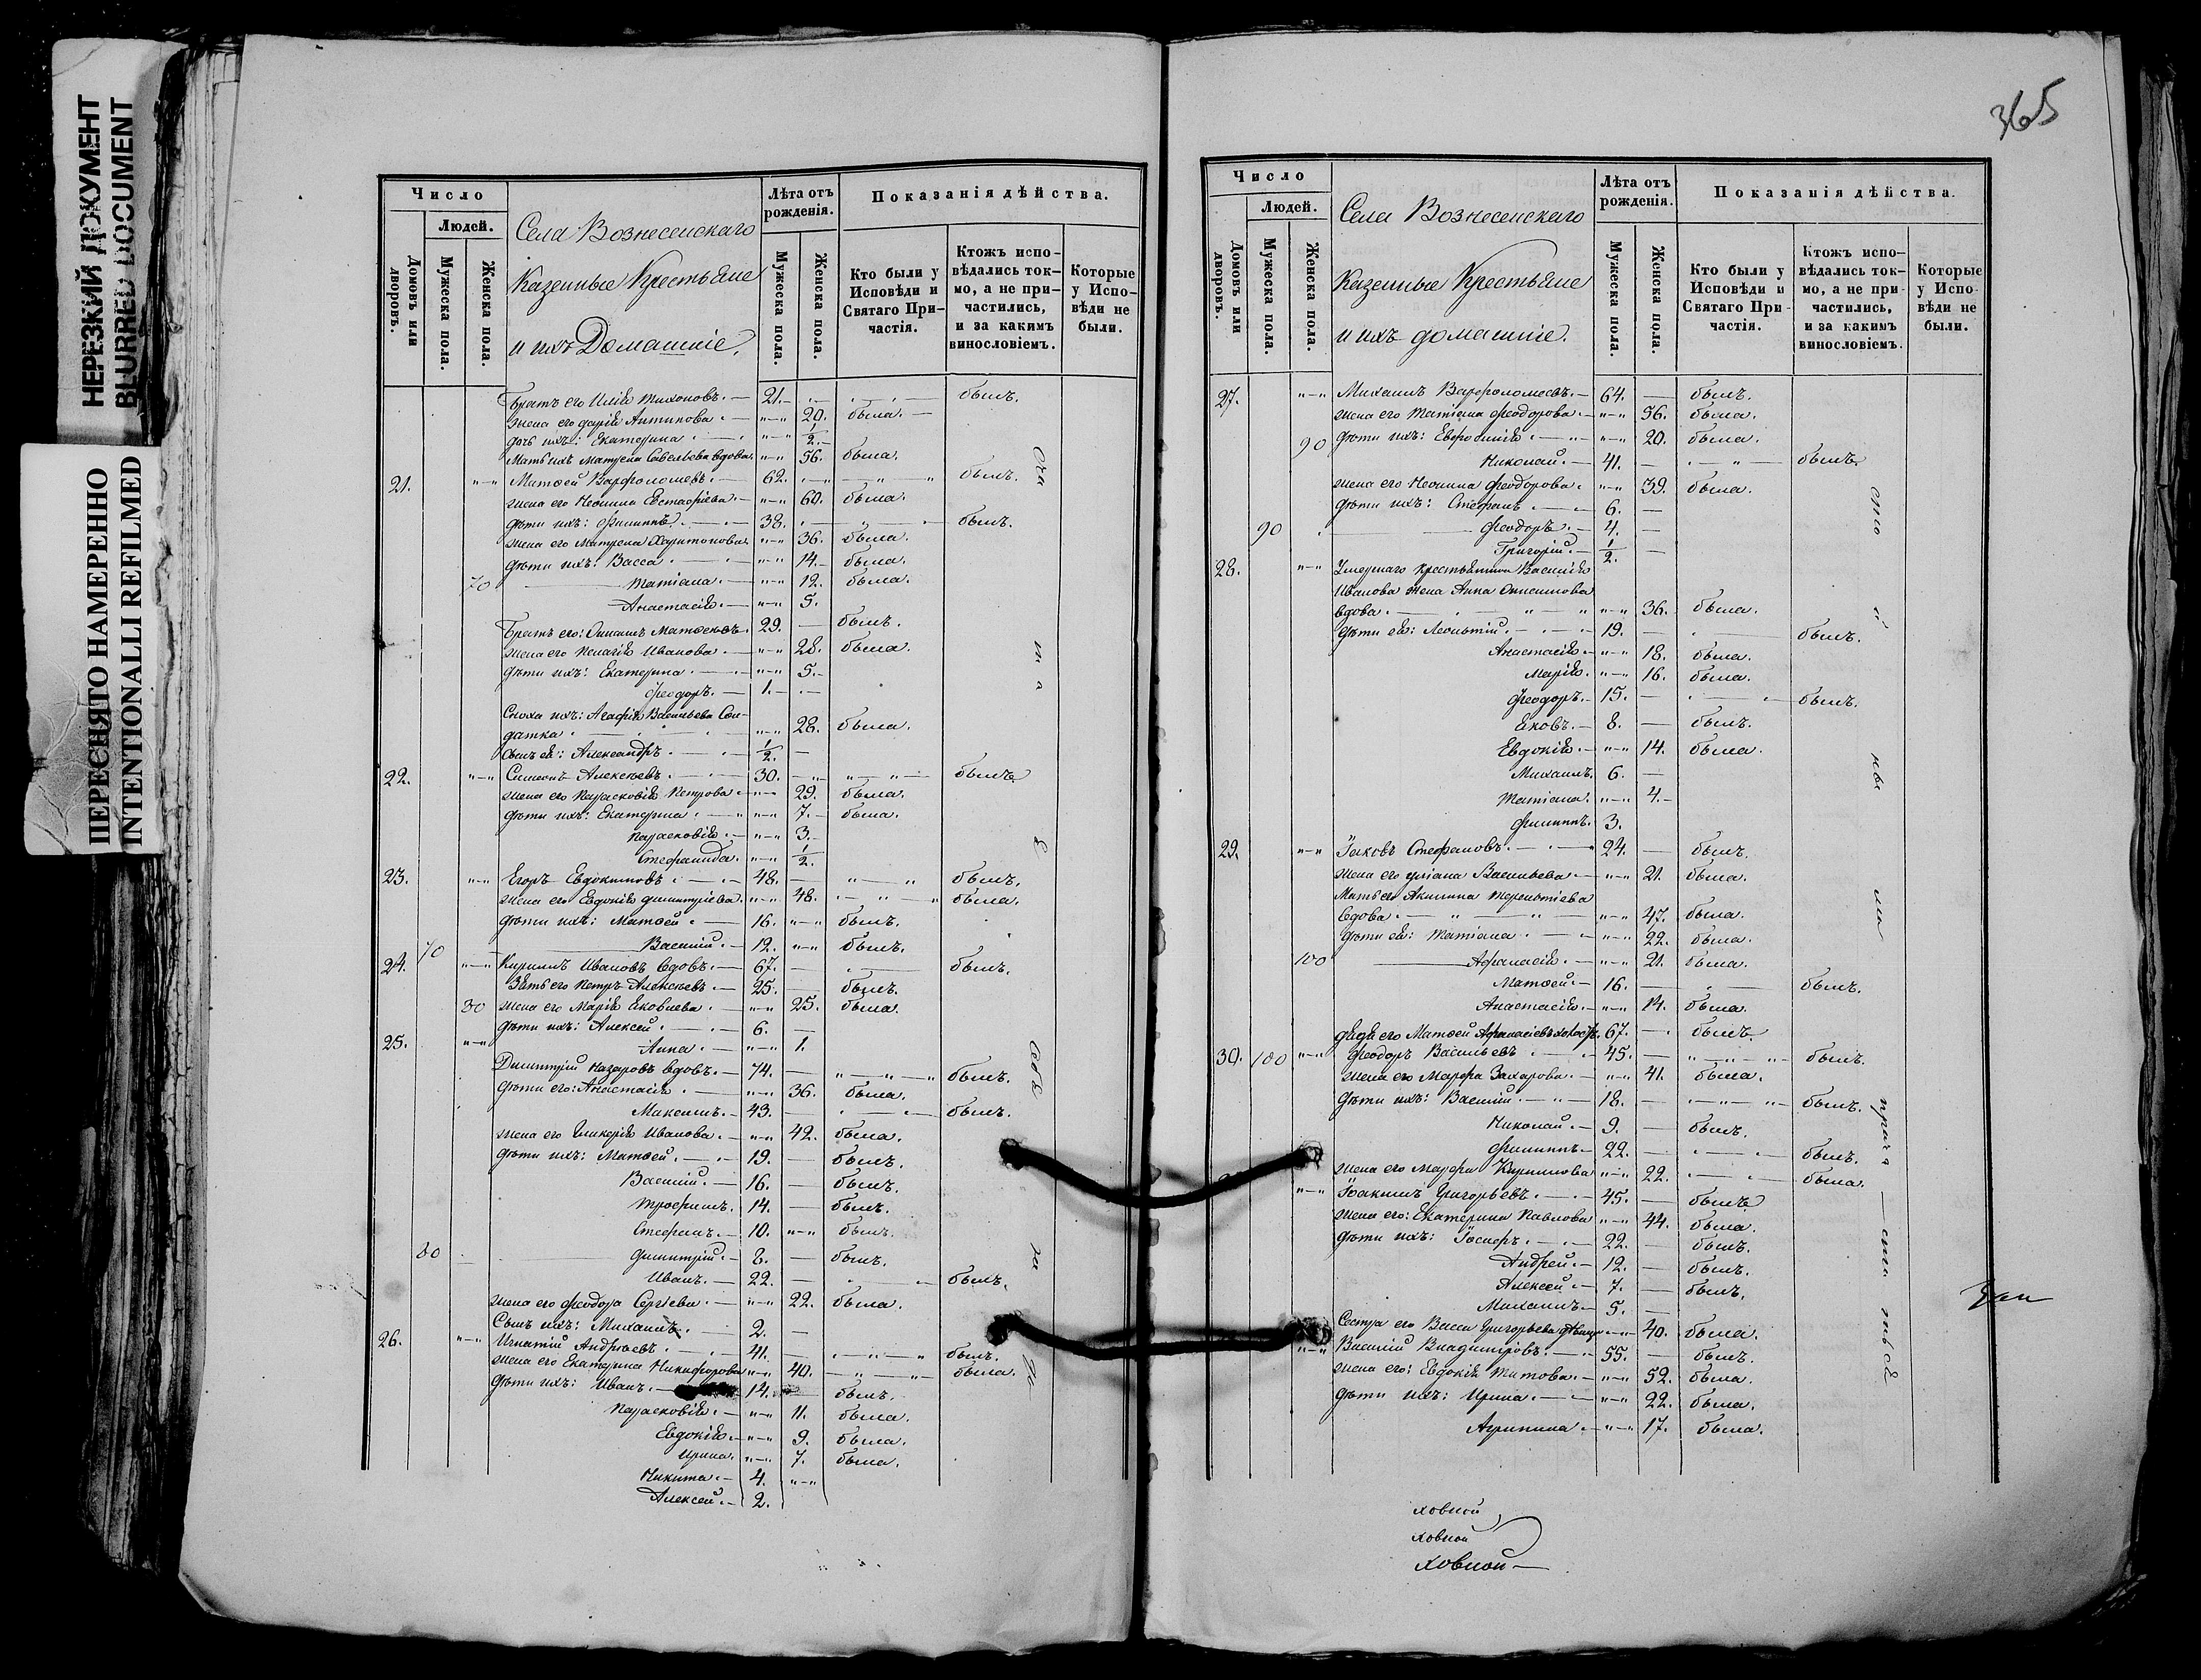 НЕРЕЗКИЙ ДОКУМЕНТ
BLURRED DOCUMENT
ПЕРЕСНЯТО НАМЕРЕННО
INTENTIONALLI REFILMED
Число
Людей.
Домовъ или дворовъ.
Мужеска пола.
Женска пола.
Села Вознесенскаго
Казенные Крестьяне
и ихъ Домашніе.
Лѣта отъ рожденія.
Мужеска пола.
Женска пола.
Показанія дѣйства.
Кто были у Исповѣди и Святаго При-частія.
Ктожъ испо-вѣдались ток-мо, а не при-частились, и за какимъ винословіемъ.
Которые у Испо-вѣди не были.
Братъ его Илія Тихоновъ. 21. былъ.
жена его Дарія Антипова 20. была.
дочь ихъ: Екатерина 1/2.
Мать ихъ Матрена Савельева вдова. 56. была.
21. Матѳей Варфоломеевъ. 62. былъ.
жена его Неонила Евстафіева. 60. была.
дѣти ихъ: Филиппъ. 38. былъ.
жена его Матрена Харитонова. 36. была.
дѣти ихъ: Васса 14. была.
70 Татіана. 12. была.
Анастасія. 5.
Братъ его: Онисимъ Матѳеевъ. 29. былъ.
жена его Пелагія Иванова. 28. была.
дѣти ихъ: Екатерина 5.
Феодоръ. 1.
Сноха ихъ: Агафія Васильева Сол-
датка 28. была.
сынъ ея: Александръ 1/2.
22. Симеонъ Алексеевъ. 30. былъ
жена его Парасковія Петрова 29. была.
дѣти ихъ: Екатерина 7. была.
Парасковія. 3.
Стефанида. 1/2.
23. Егоръ Евдокимовъ 48. былъ.
жена его Евдокія Димитріева. 48. была.
дѣти ихъ: Матѳей 16. былъ.
70 Василій. 12. былъ.
24. Кирилъ Ивановъ вдовъ. 67. былъ.
Зять его Петръ Алексеевъ. 25. былъ.
80 жена его Марія Яковлева. 25. была.
дѣти ихъ: Алексей 6.
25. Анна. 1.
Димитрій Назаровъ вдовъ. 74. былъ.
дѣти его: Анастасія 36. была.
Максимъ. 43. былъ.
жена его Гликерія Иванова. 42. была.
дѣти ихъ: Матѳей. 19. былъ.
Василій. 16. былъ.
Трофимъ. 14. былъ.
Стефанъ. 10. былъ.
80 Димитрій. 8. былъ.
Иванъ. 22. былъ.
жена его Феодора Сергіева. 22. была.
Сынъ ихъ: Михаилъ. 2.
26. Игнатій Андреевъ. 41. былъ.
жена его Екатерина Никифорова 40. была.
дѣти ихъ: Иванъ. 14. былъ.
Парасковія. 11. была.
Евдокія. 9. была.
Ирина. 7. была.
Никита. 4.
Алексей. 2.
365
Число
Людей.
Домовъ или дворовъ.
Мужеска пола.
Женска пола.
Села Вознесенскаго
Казенные Крестьяне
и ихъ домашніе.
Лѣта отъ рожденія.
Мужеска пола.
Женска пола.
Показанія дѣйства.
Кто были у Исповѣди и Святаго При-частія.
Ктожъ испо-вѣдались ток-мо, а не при-частились, и за какимъ винословіемъ.
Которые у Испо-вѣди не были.
27. Михаилъ Варфоломеевъ. 64. былъ.
жена его Татіана Феодорова. 56. была.
90 дѣти ихъ: Евфросинія 20. была.
Николай. 41. былъ.
жена его Неонила Феодорова. 39. была.
дѣти ихъ: Стефанъ 6.
90 Феодоръ. 4.
Григорій. 1/2.
28. Умершаго крестьянина Василія
Иванова жена Анна Онисимова
вдова. 36. была.
дѣти ея: Леонтій. 19. былъ.
Анастасія. 18. была.
Марія. 16. была.
Феодоръ. 15. былъ.
Яковъ. 8. былъ.
Евдокія. 14. была.
Михаилъ. 6.
Татіана. 4.
Филиппъ. 3.
29. Іаковъ Стефановъ. 24. былъ.
жена его Уліана Васильева. 21. была.
Мать его Акилина Терентіева
вдова. 47. была.
дѣти ея: Татіана 22. была.
100 Афанасія. 21. была.
Матѳей. 16. былъ.
Анастасія. 14. была.
дядя его Матѳей Афанасіевъ холостъ. 67. былъ
30. 100 Феодоръ Васильевъ 45. былъ.
жена его Марфа Захарова. 41. была.
дѣти ихъ: Василій. 18. былъ.
Николай. 9. былъ.
Филиппъ. 22. былъ.
жена его Марфа Кирилова 22. была.
Іоакимъ Григорьевъ. 45. былъ
жена его: Екатерина Павлова 44. была.
дѣти ихъ: Іосифъ. 22. былъ.
Андрей. 12. былъ.
Алексей. 7. былъ.
Михаилъ. 5.
Сестра его Васса Григорьева дѣвица 40. была.
Василій Владимировъ. 55. былъ.
жена его: Евдокія Титова. 52. была.
дѣти ихъ: Ирина. 22. была.
Агрипина. 17. была.
ховной
ховной
ховной